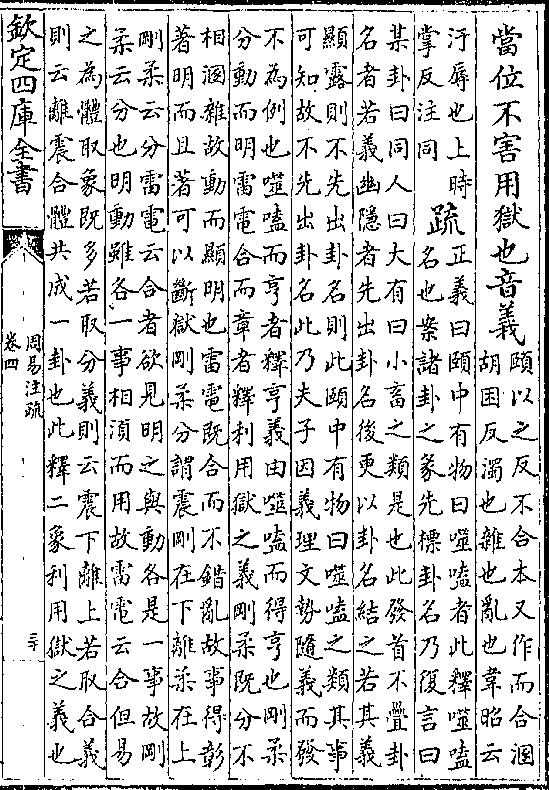 當位不害用獄也音義
頤以之反不合本又作而合溷
胡困反濁也雜也亂也韋昭云
汙辱也上時
掌反注同
疏
正義曰頤中有物曰噬嗑者此釋噬嗑
名也案諸卦之彖先標卦名乃復言曰
某卦曰同人曰大有曰小畜之類是也此發首不疊卦
名者若義幽隱者先出卦名後更以卦名結之若其義
顯露則不先出卦名則此頤中有物曰噬嗑之類其事
可知故不先出卦名此乃夫子因義理文勢隨義而發
不為例也噬嗑而亨者釋亨義由噬嗑而得亨也剛柔
分動而明雷電合而章者釋利用獄之義剛柔既分不
相溷雜故動而顯明也雷電既合而不錯亂故事得彰
著明而且著可以斷獄剛柔分謂震剛在下離柔在上
剛柔云分雷電云合者欲見明之與動各是一事故剛
柔云分也明動雖各一事相須而用故雷電云合但易
之為體取象既多若取分義則云震下離上若取合義
則云離震合體共成一卦也此釋二象利用獄之義也
欽定四庫全書
周易注疏
卷四
三十